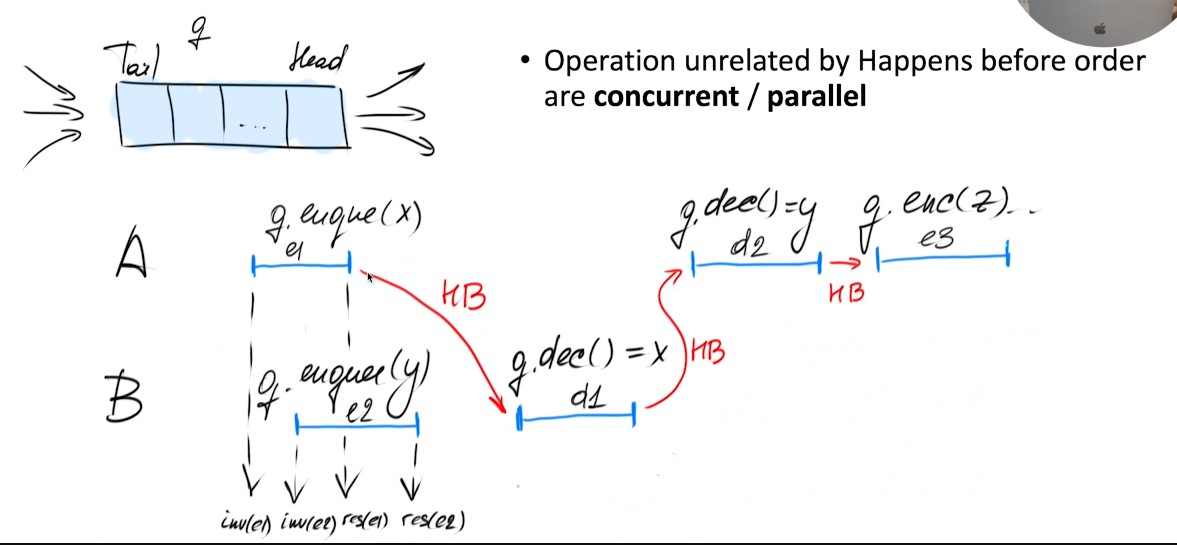 q
Tail Head
• Operation unrelated by Happens before order
are concurrent / parallel
A
q.enque(x)
e1
HB
q.dec()=y
d2
HB
q.enc(z)...
e3
B
q.enquee(y)
e2
q.dec()=x
d1
HB
inv(e1) inv(e2) res(e1) res(e2)